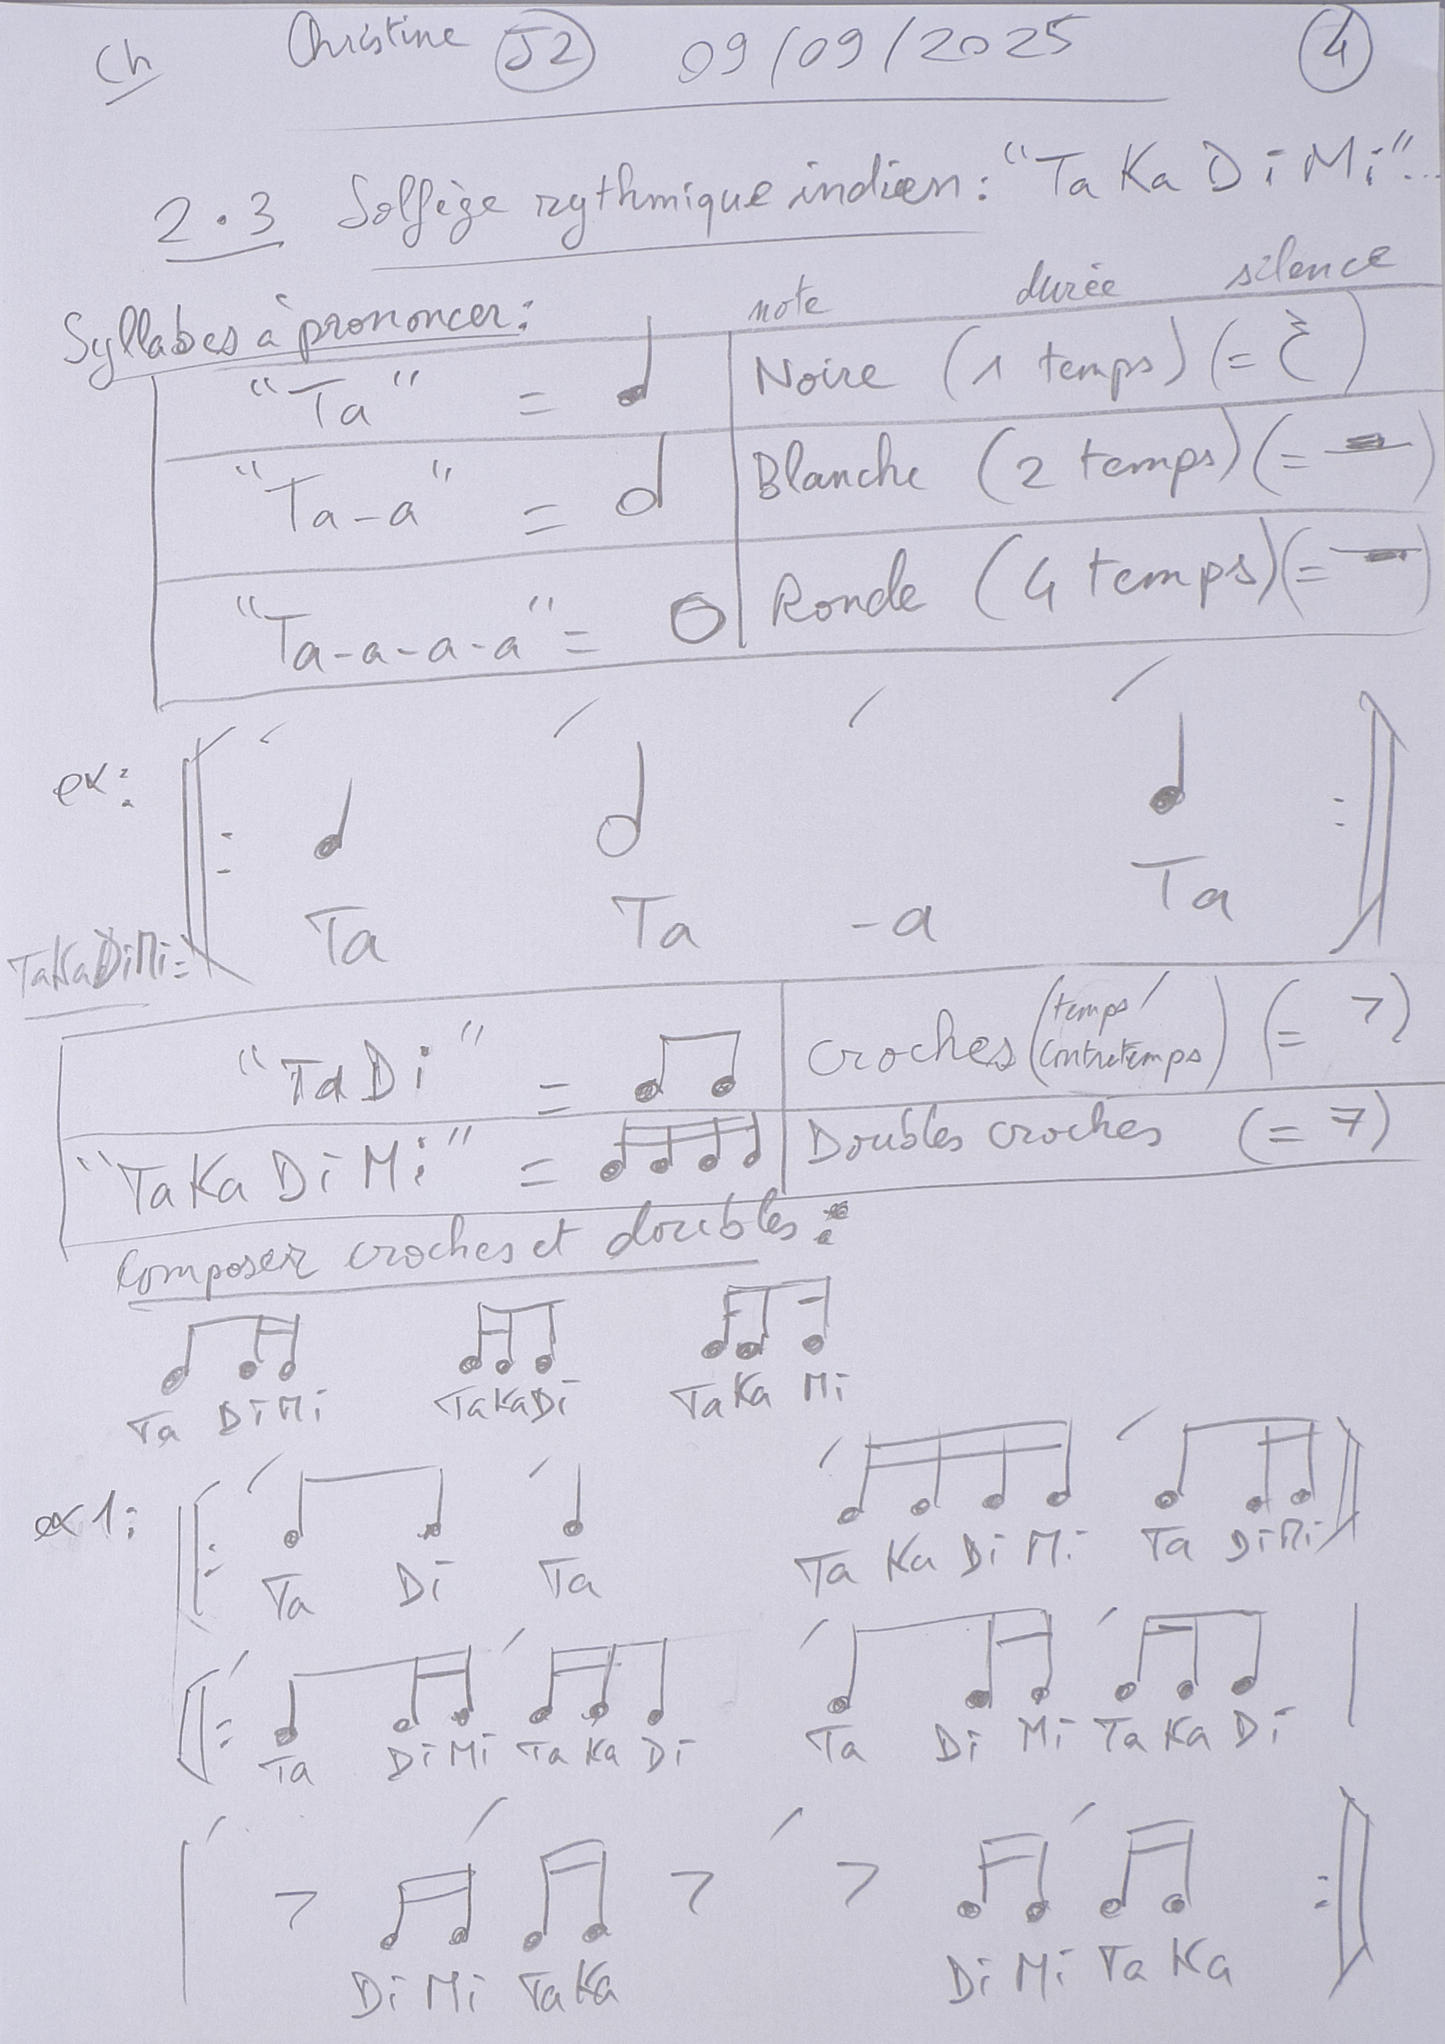 Ch Christine J2 09/09/2025 4
2.3 Solfège rythmique indien: "Ta Ka Di Mi"...
Syllabes à prononcer: note durée silence
"Ta" = Noire (1 temps) (= )
"Ta-a" = Blanche (2 temps) (= )
"Ta-a-a-a" = Ronde (4 temps) (= )
ex:
TaKaDiMi= Ta Ta -a Ta
"TaDi" = croches (temps/contretemps) (= )
"TaKa Di Mi" = Doubles croches (= )
Composer croches et doubles:
Ta DiMi TaKaDi TaKa Mi
ex 1:
Ta Di Ta Ta Ka Di Mi Ta DiMi
Ta Di Mi Ta Ka Di Ta Di Mi Ta Ka Di
Di Mi TaKa Di Mi Ta Ka